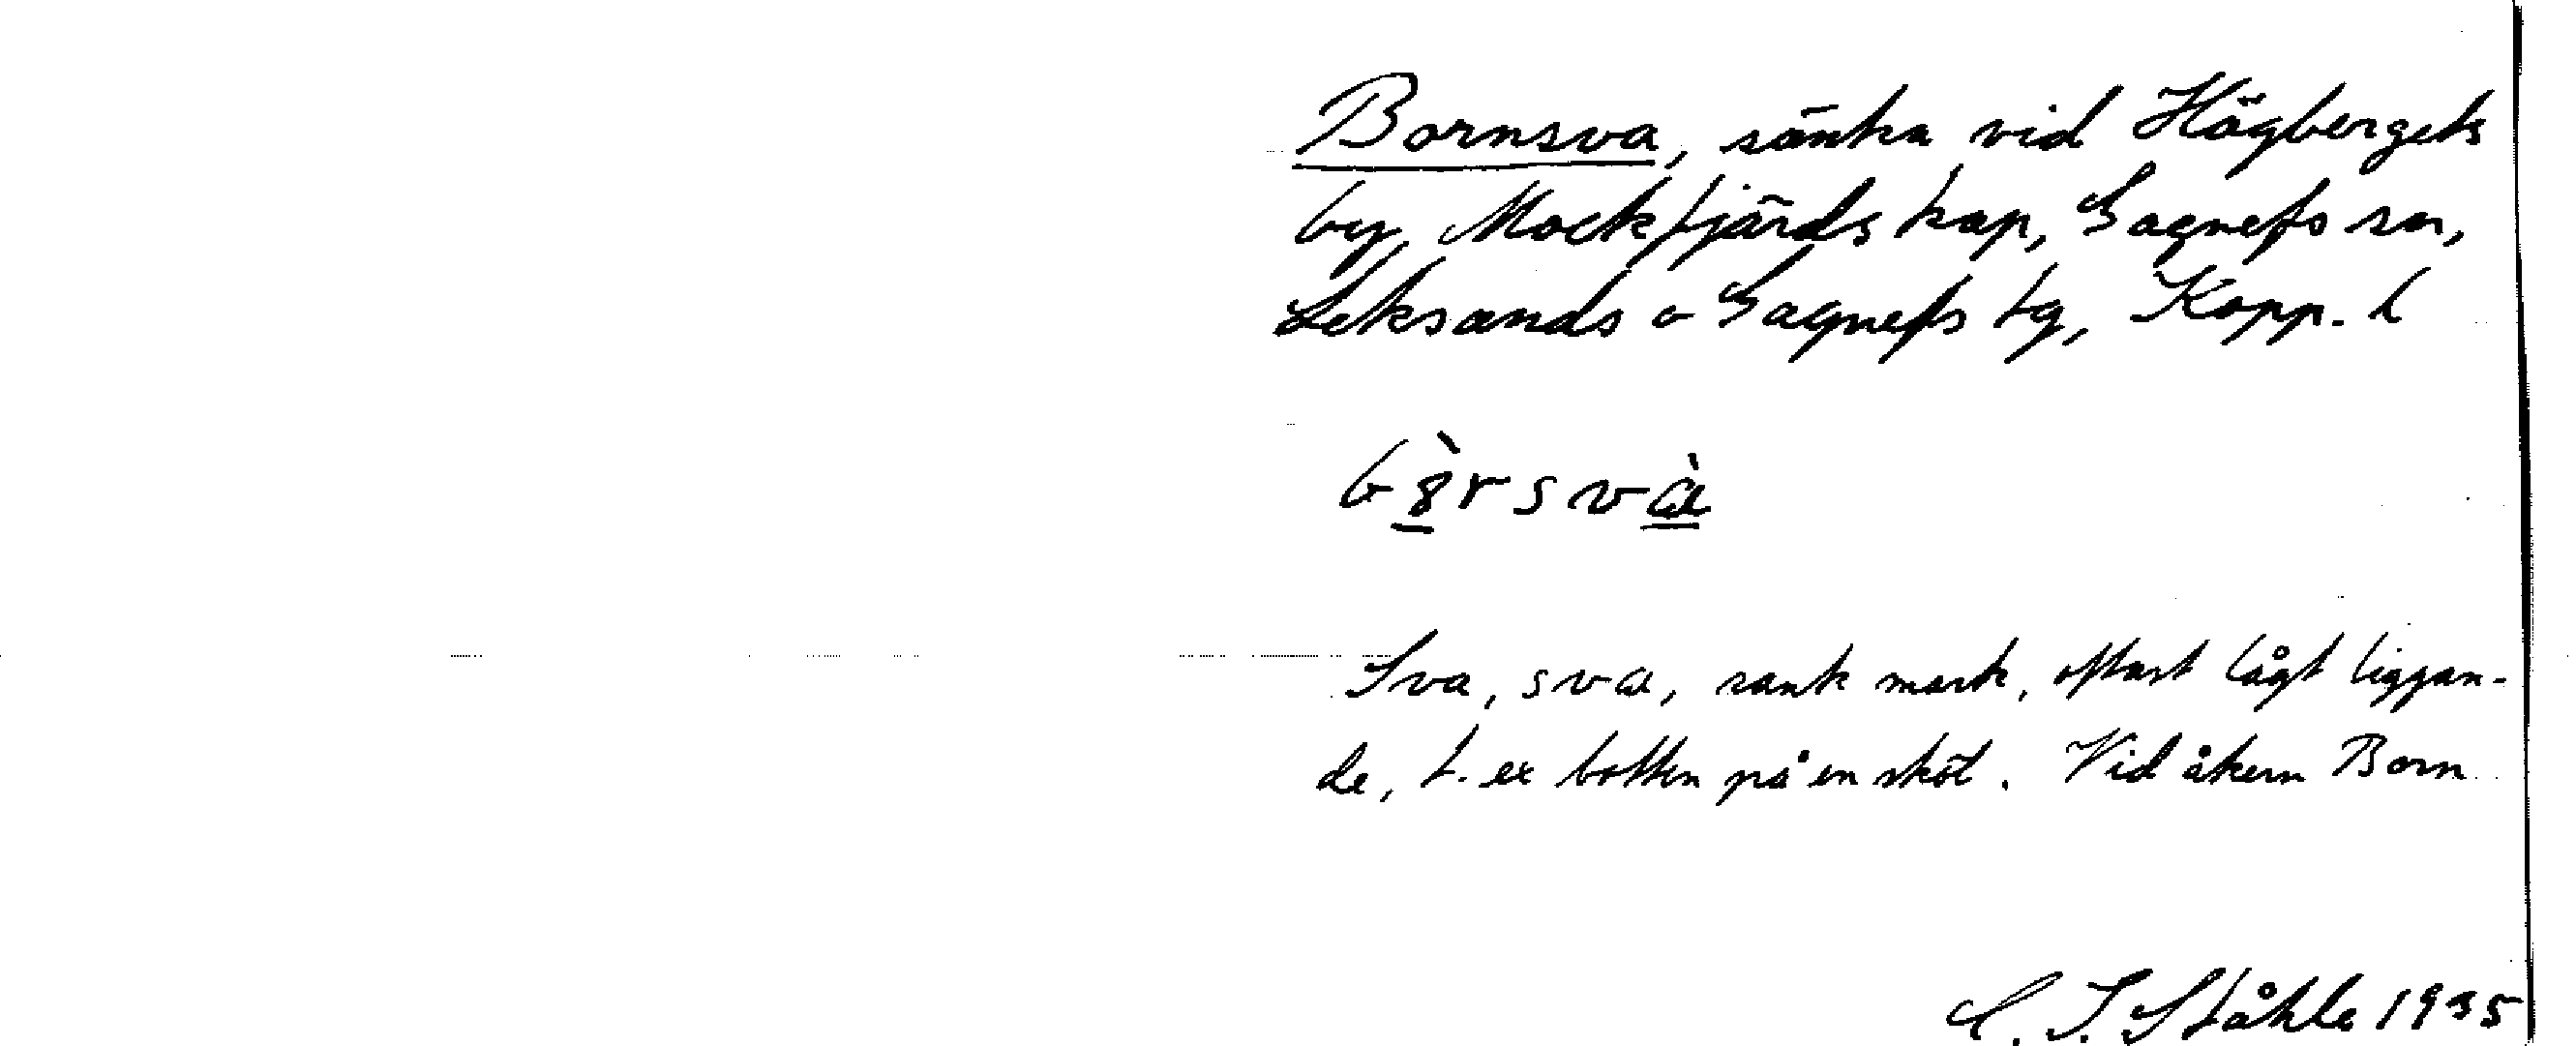 Bornsva, sänka vid Högbergets
by, Mockfjärds kap, Gagnefs sn,
Leksands o Gagnefs tg, Kopp. l
Sva, sva, sank mark, oftast lågt liggan-
de, t. ex botten på en sköt. Vid åkern Born
C. I. Ståhle 1935